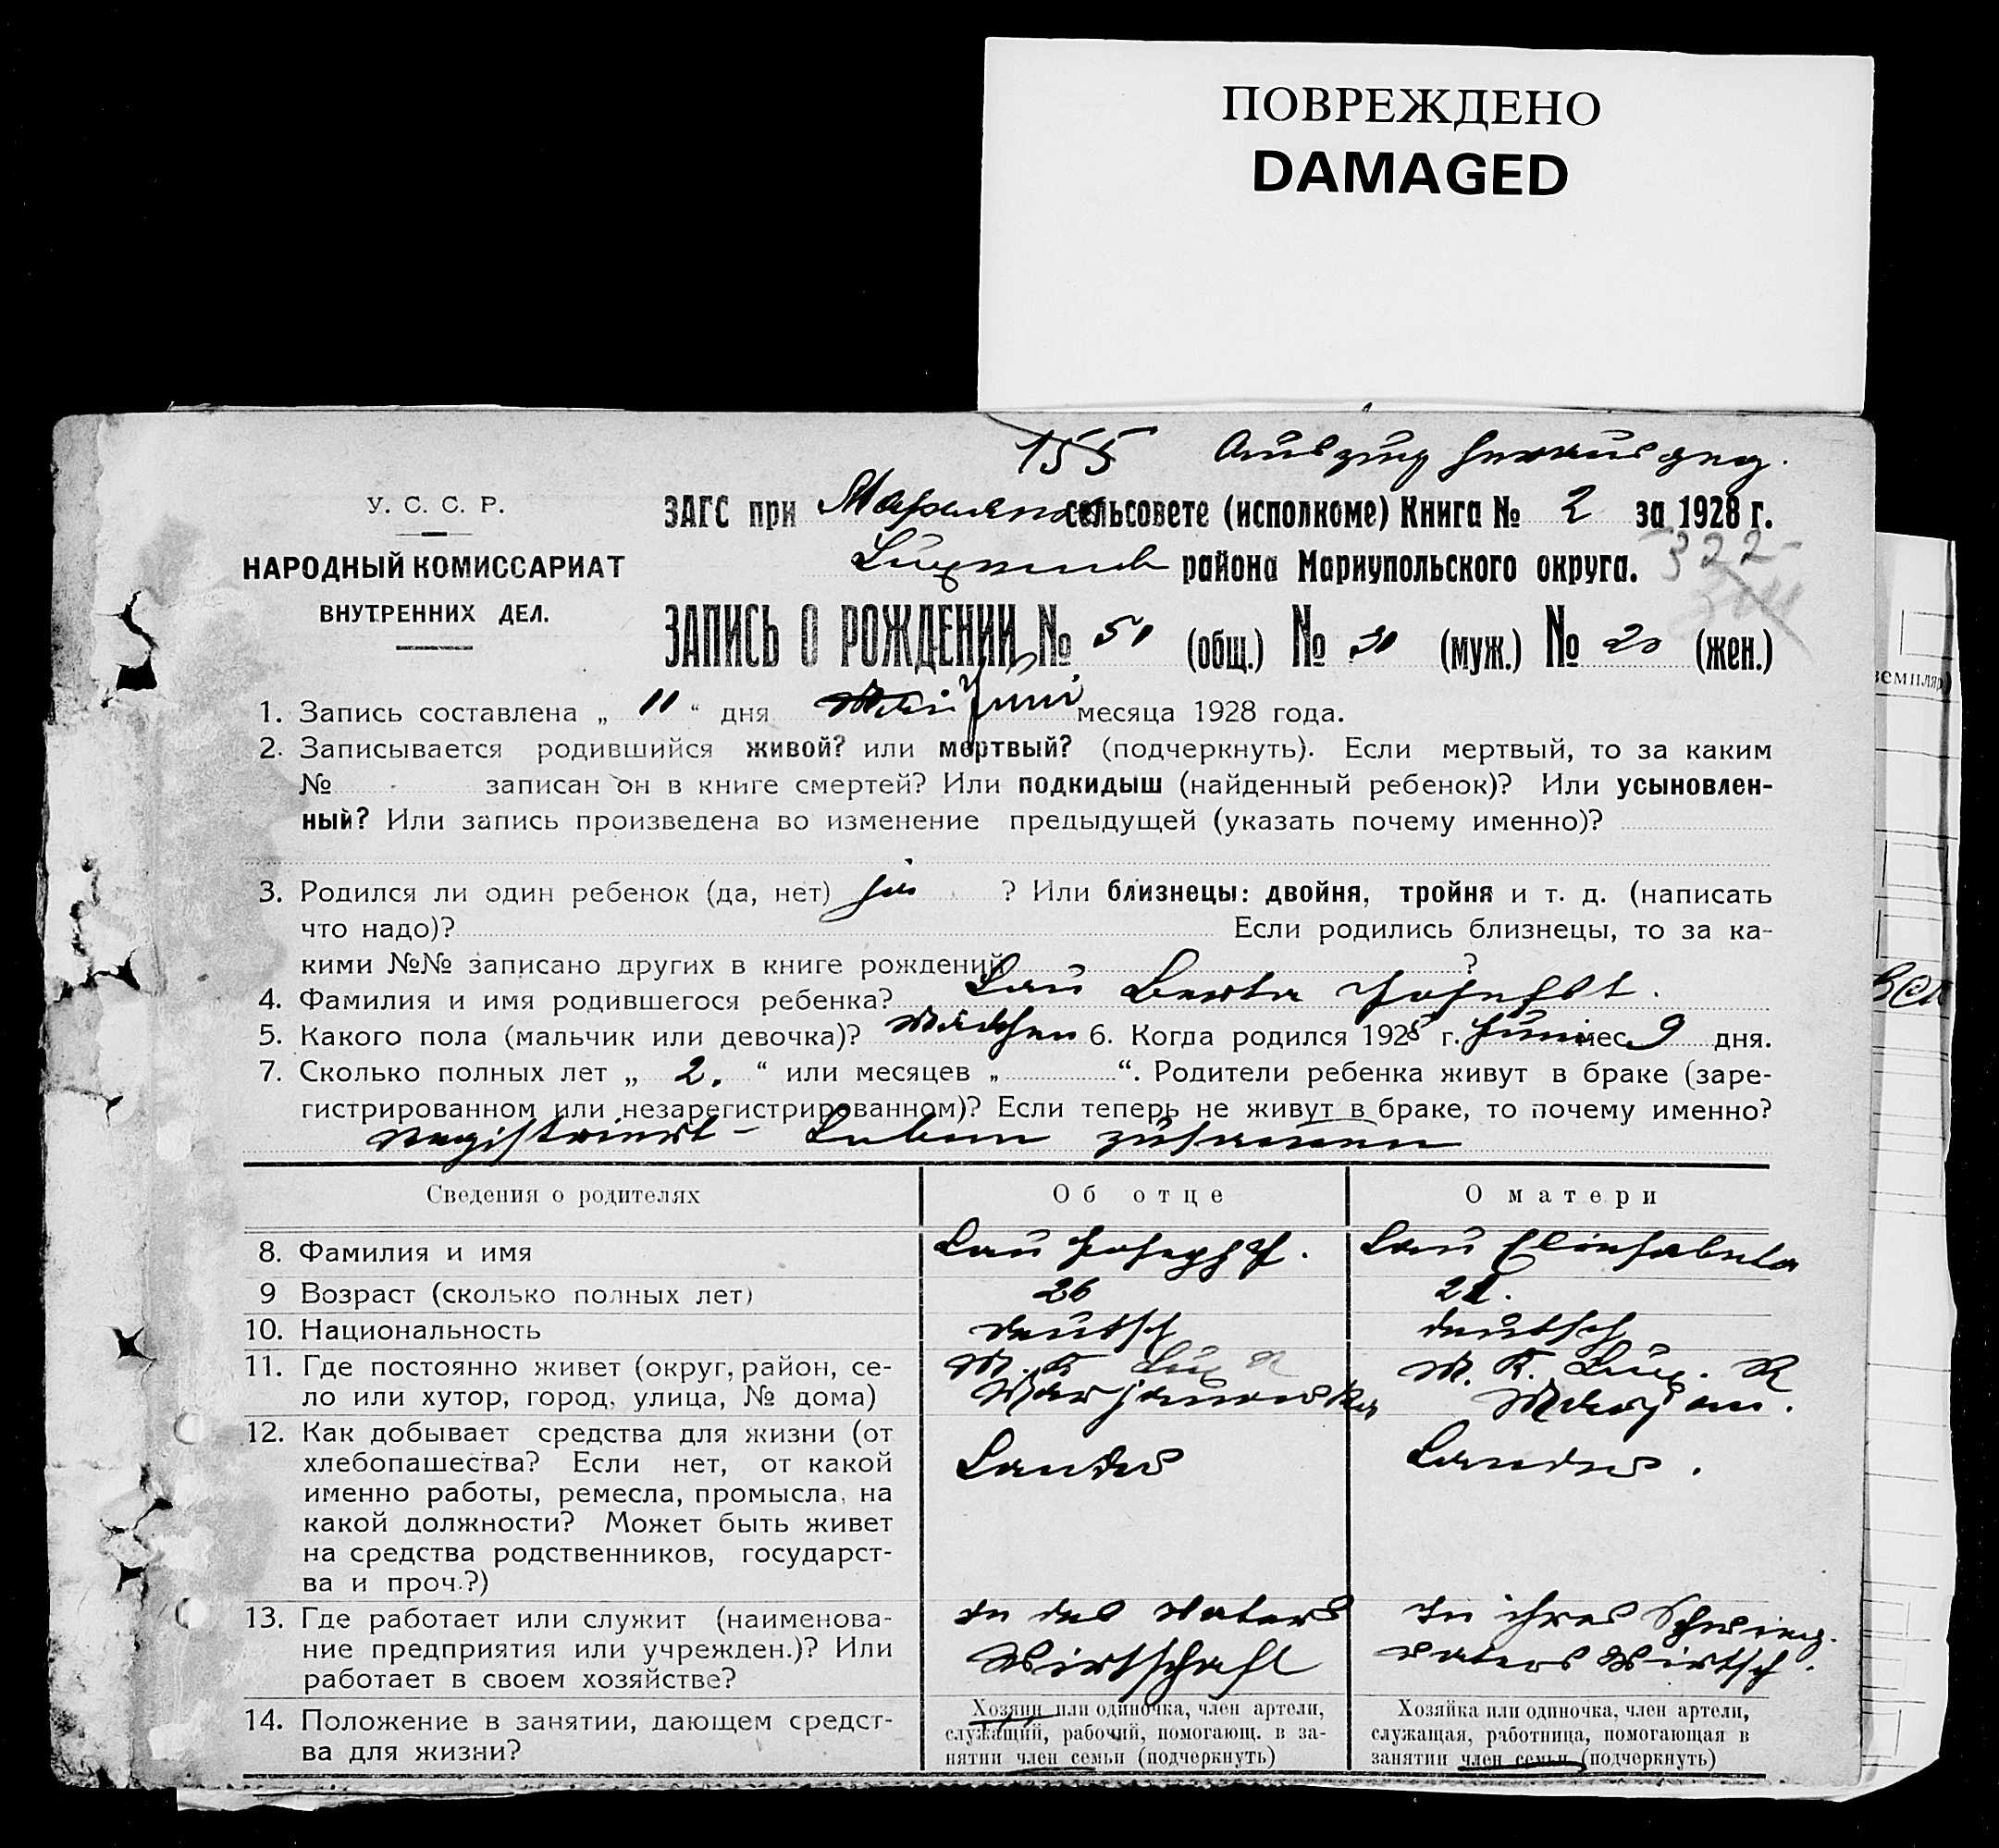 ПОВРЕЖДЕНО
DAMAGED
155 Auszug herausgeg.
У. С. С. Р.
ЗАГС при сельсовете (исполкоме) Книга № 2 за 1928 г.
НАРОДНЫЙ КОМИССАРИАТ
района Мариупольского округа. 322
ВНУТРЕННИХ ДЕЛ.
ЗАПИСЬ О РОЖДЕНИИ № 51 (общ.) № 31 (муж.) № 20 (жен.)
земпляр)
1. Запись составлена „ 11 “ дня Mai Juni месяца 1928 года.
2. Записывается родившийся живой? или мертвый? (подчеркнуть). Если мертвый, то за каким
№ записан он в книге смертей? Или подкидыш (найденный ребенок)? Или усыновлен-
ный? Или запись произведена во изменение предыдущей (указать почему именно)?
3. Родился ли один ребенок (да, нет) ja ? Или близнецы: двойня, тройня и т. д. (написать
что надо)? Если родились близнецы, то за ка-
кими №№ записано других в книге рождений ?
4. Фамилия и имя родившегося ребенка? Lau Berta
5. Какого пола (мальчик или девочка)? Mädchen 6. Когда родился 1928 г. Juni мес. 9 дня.
7. Сколько полных лет „ 2. “ или месяцев „ “. Родители ребенка живут в браке (заре-
гистрированном или незарегистрированном)? Если теперь не живут в браке, то почему именно?
registriert – Leben zusammen
Сведения о родителях Об отце О матери
8. Фамилия и имя Lau Joseph J. Lau Elisabeta
9 Возраст (сколько полных лет) 26 21.
10. Национальность deutsch deutsch
11. Где постоянно живет (округ, район, се- M. K. Lux R M. K. Lux. R
ло или хутор, город, улица, № дома) Marjanowka Marjan.
12. Как добывает средства для жизни (от
хлебопашества? Если нет, от какой Landw Landw.
именно работы, ремесла, промысла, на
какой должности? Может быть живет
на средства родственников, государст-
ва и проч.?)
13. Где работает или служит (наименова- In des Vaters In ihres Schwieg.
ние предприятия или учрежден.)? Или Wirtschaft vaters Wirtsch.
работает в своем хозяйстве?
14. Положение в занятии, дающем средст-
ва для жизни?
Хозяин или одиночка, член артели,
служащий, рабочий, помогающ. в за-
нятии член семьи (подчеркнуть)
Хозяйка или одиночка, член артели,
служащая, работница, помогающая в
занятии член семьи (подчеркнуть)